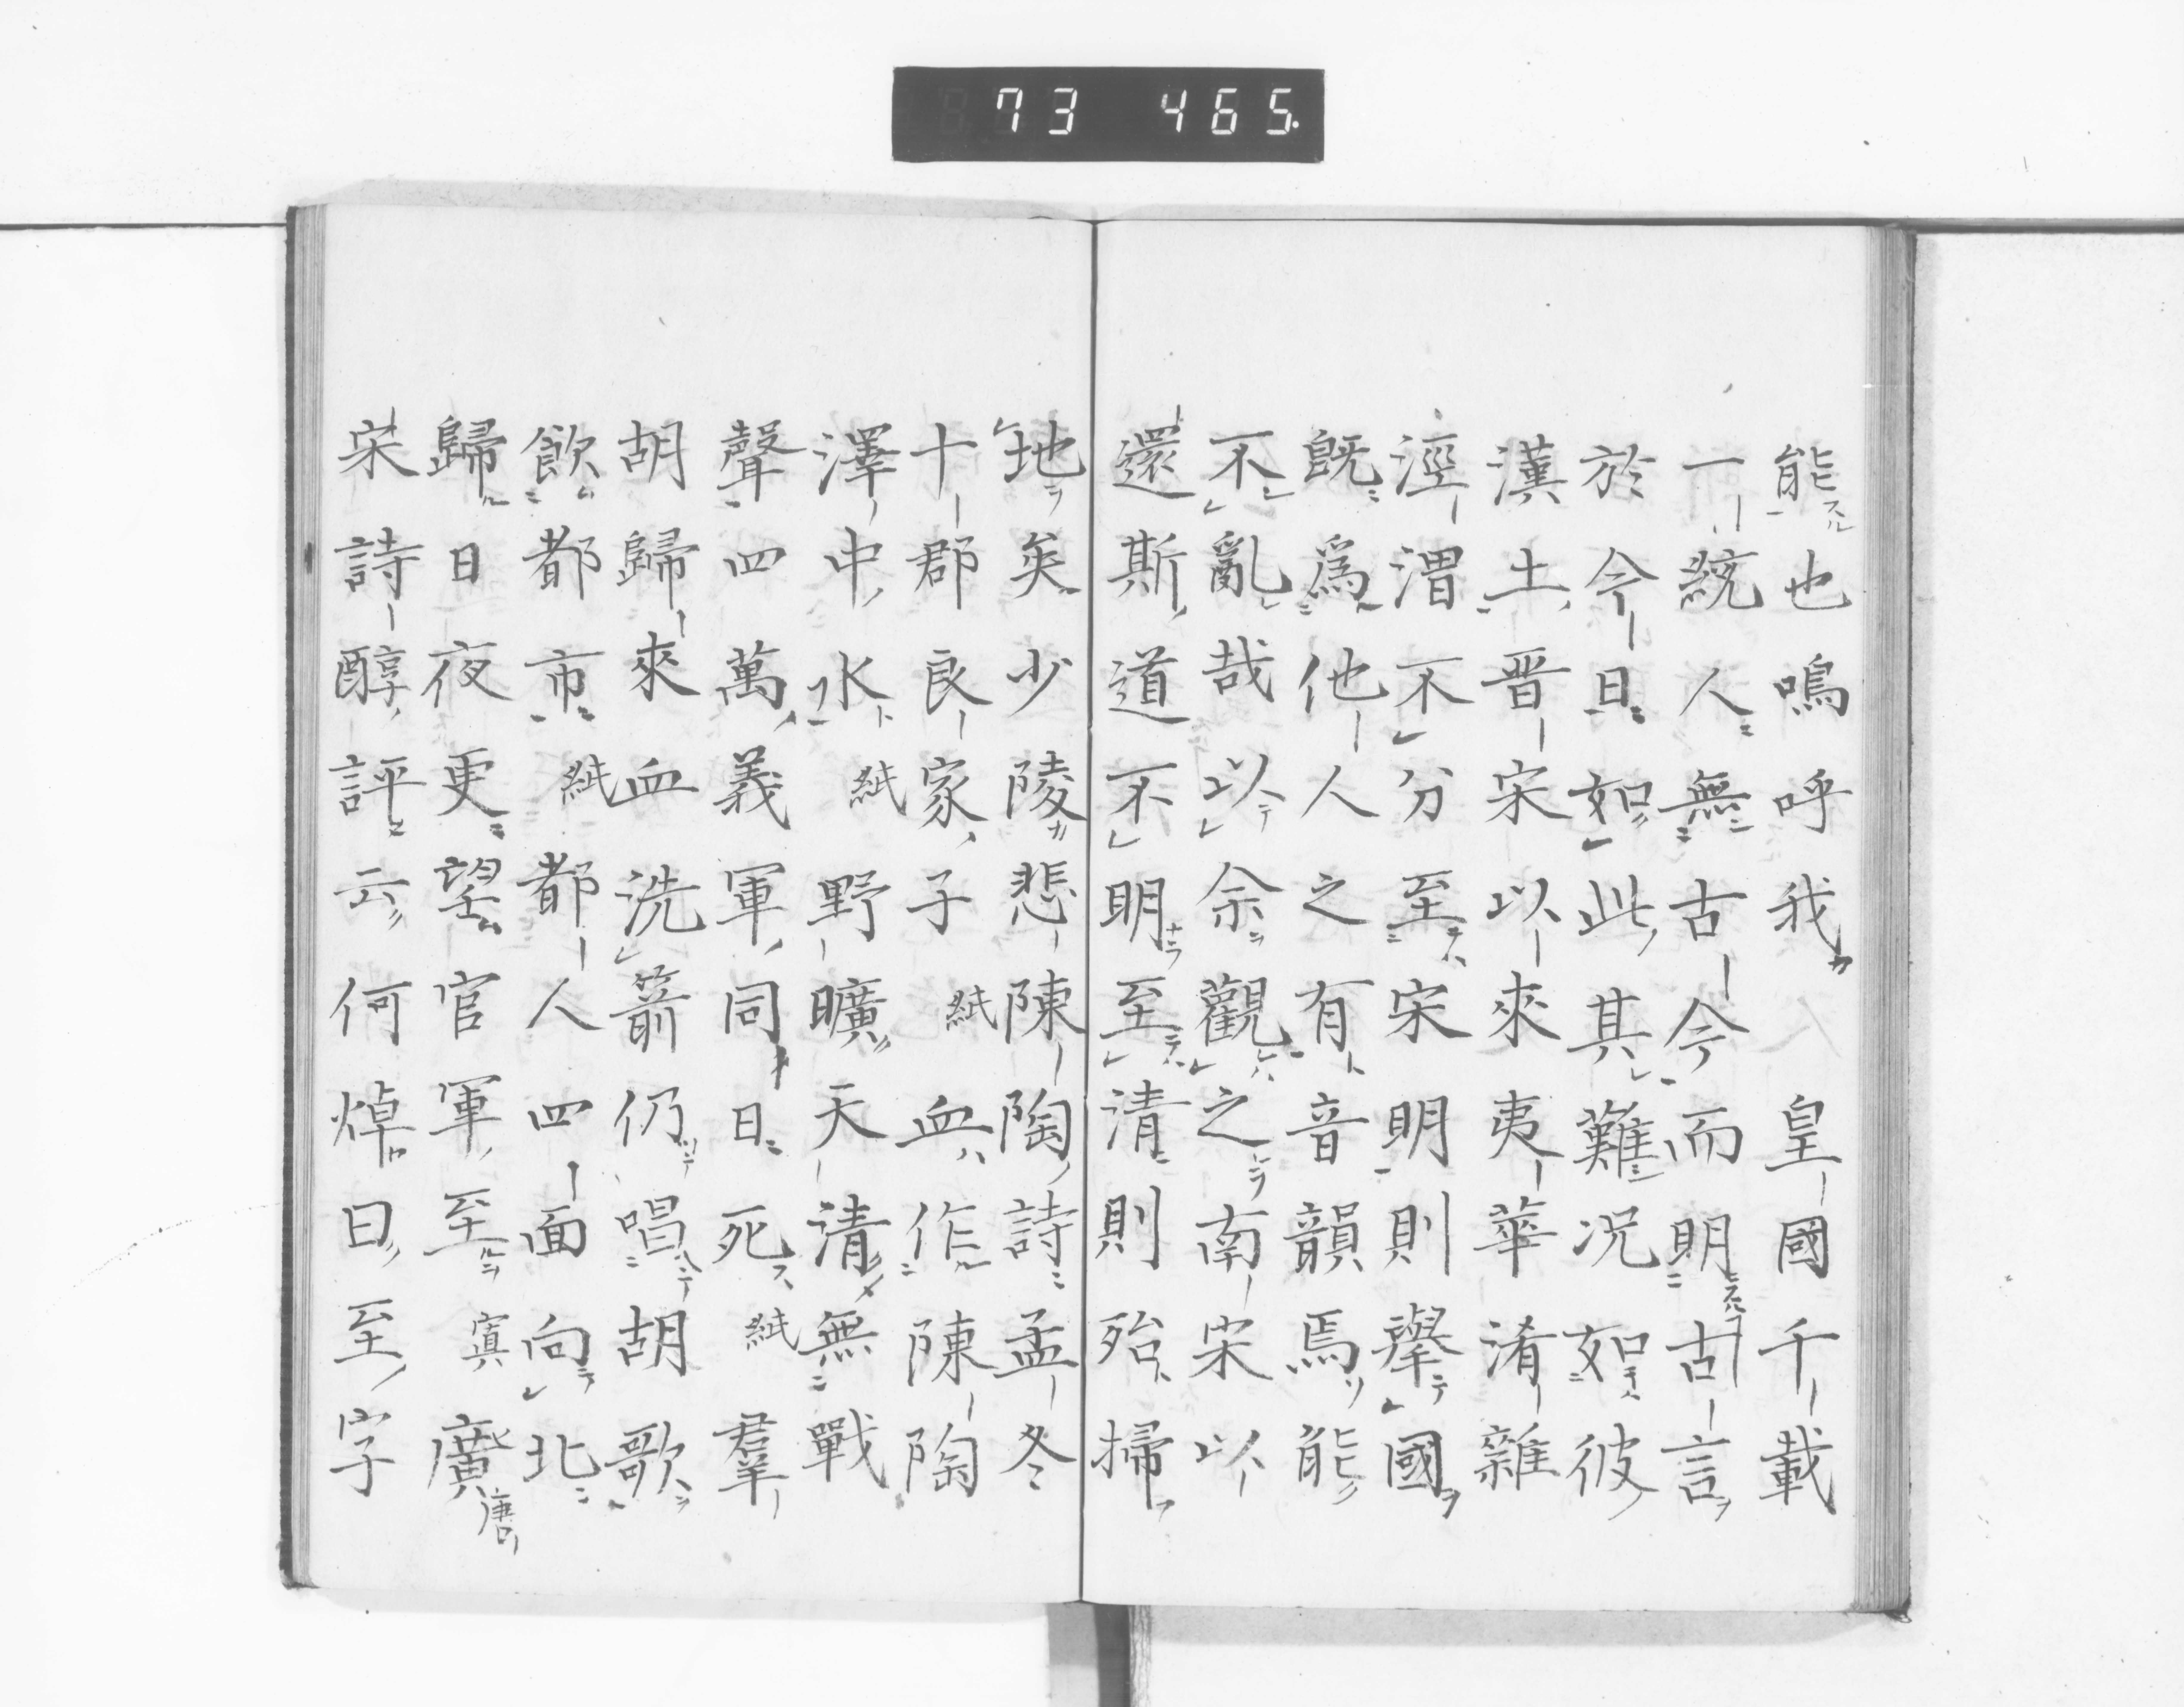 73 465.
能也嗚呼我 皇國千載
一統人無古今而明古言
於今日如此其難况如彼
漢土晋宋以來夷華淆雜
涇渭不分至宋明則擧國
既爲他人之有音韻焉能
不亂哉以余觀之南宋以
還斯道不明至清則殆掃
地矣少陵悲陳陶詩孟冬
十郡良家子 紙 血作陳陶
澤中水 紙 野曠天清無戰
聲四萬義軍同日死 紙 羣
胡歸來血洗箭仍唱胡歌
飲都市 紙 都人四面向北
歸日夜更望官軍至 寘 廣唐
宋詩醇評云何焯曰至字